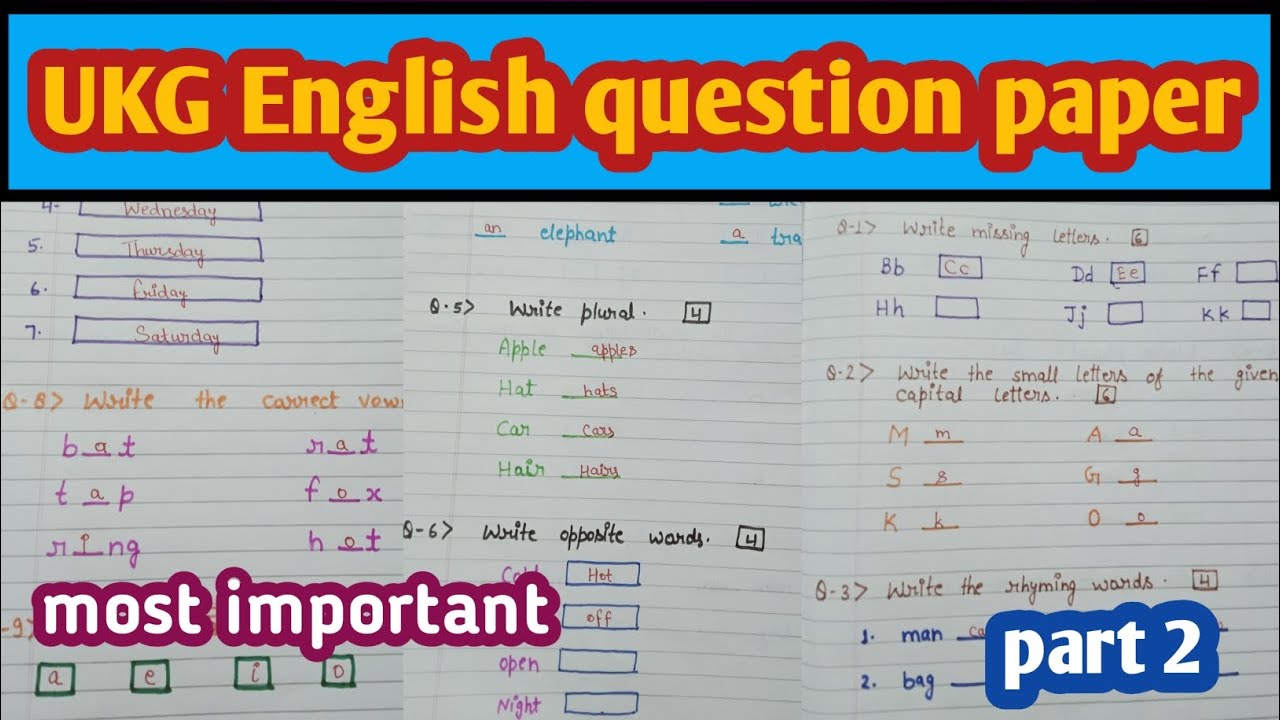 UKG English question paper
4. Wednesday
5. Thursday
6. Friday
7. Saturday
Q-8> Write the carrect vow
b a t r a t
t a p f o x
r i ng h o t
-9>
a e i o
an elephant a tra
Q.5> Write plural. 4
Apple apples
Hat hats
Car Cars
Hair Hairs
Q-6> Write opposite wards. 4
Hot
off
open
Night
Q-1> Write missing letters. 6
Bb Cc Dd Ee Ff
Hh Jj Kk
Q-2> Write the small letters of the given
capital letters. 6
M m A a
S s G g
K k O o
Q-3> Write the rhyming wards. 4
1. man
2. bag
most important
part 2